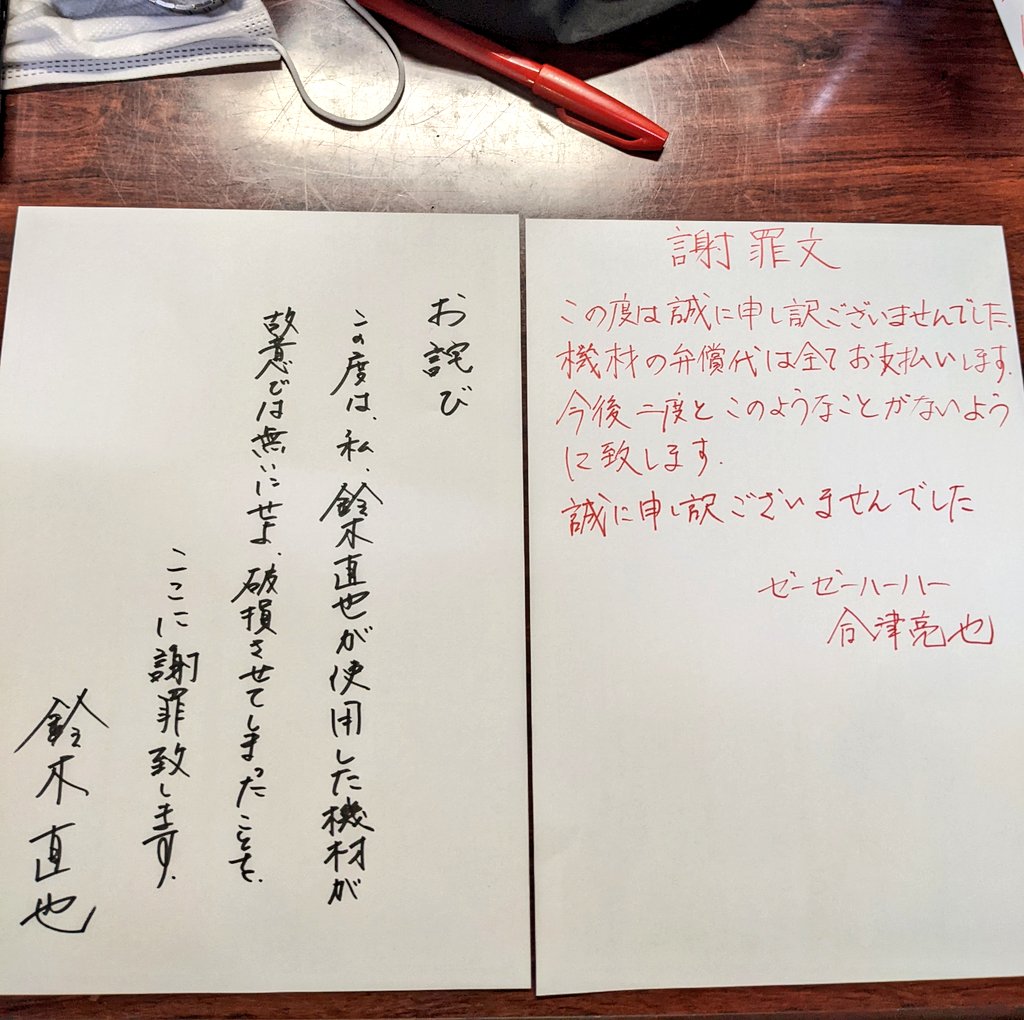 お詫び
この度は、私、鈴木直也が使用した機材が
故意では無いにせよ、破損させてしまったことを、
ここに謝罪致します。
鈴木直也
謝罪文
この度は誠に申し訳ございませんでした。
機材の弁償代は全てお支払いします。
今後二度とこのようなことがないよう
に致します。
誠に申し訳ございませんでした
ゼーゼーハーハー
合津亮也